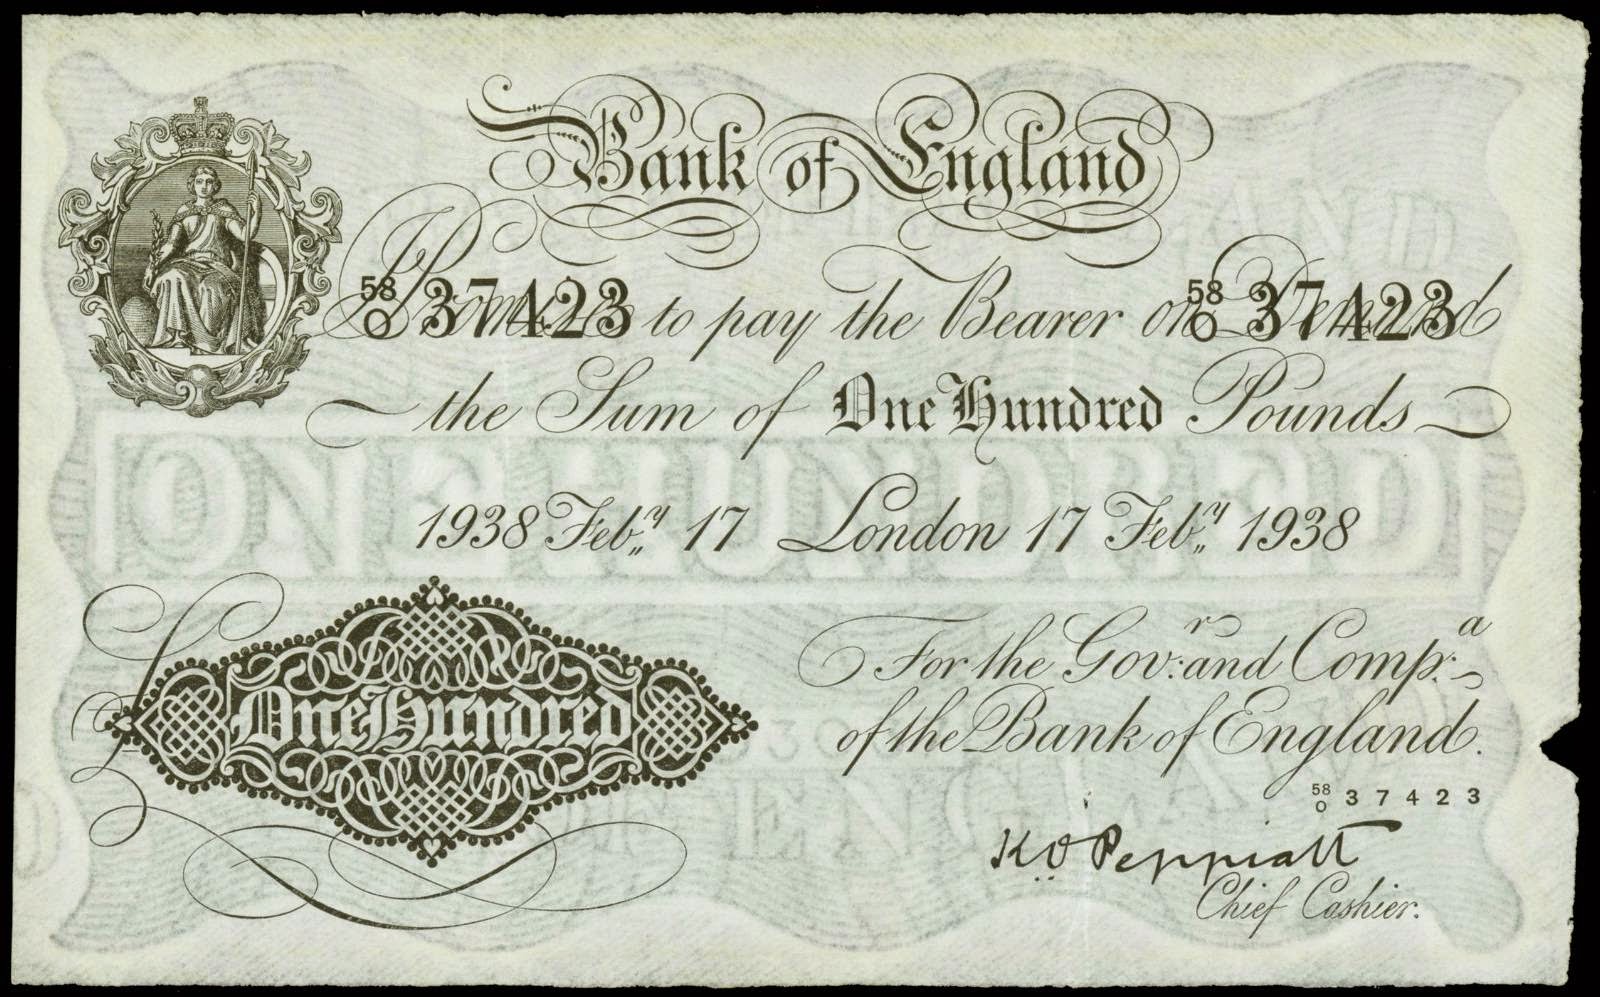 Bank of England
58/O 37423 58/O 37423
I Promise to pay the Bearer on Demand
the Sum of One Hundred Pounds
1938 Feb.y 17 London 17 Feb.y 1938
For the Gov:r and Comp:a
of the Bank of England.
One Hundred
58/O 37423
K O Peppiatt
Chief Cashier.